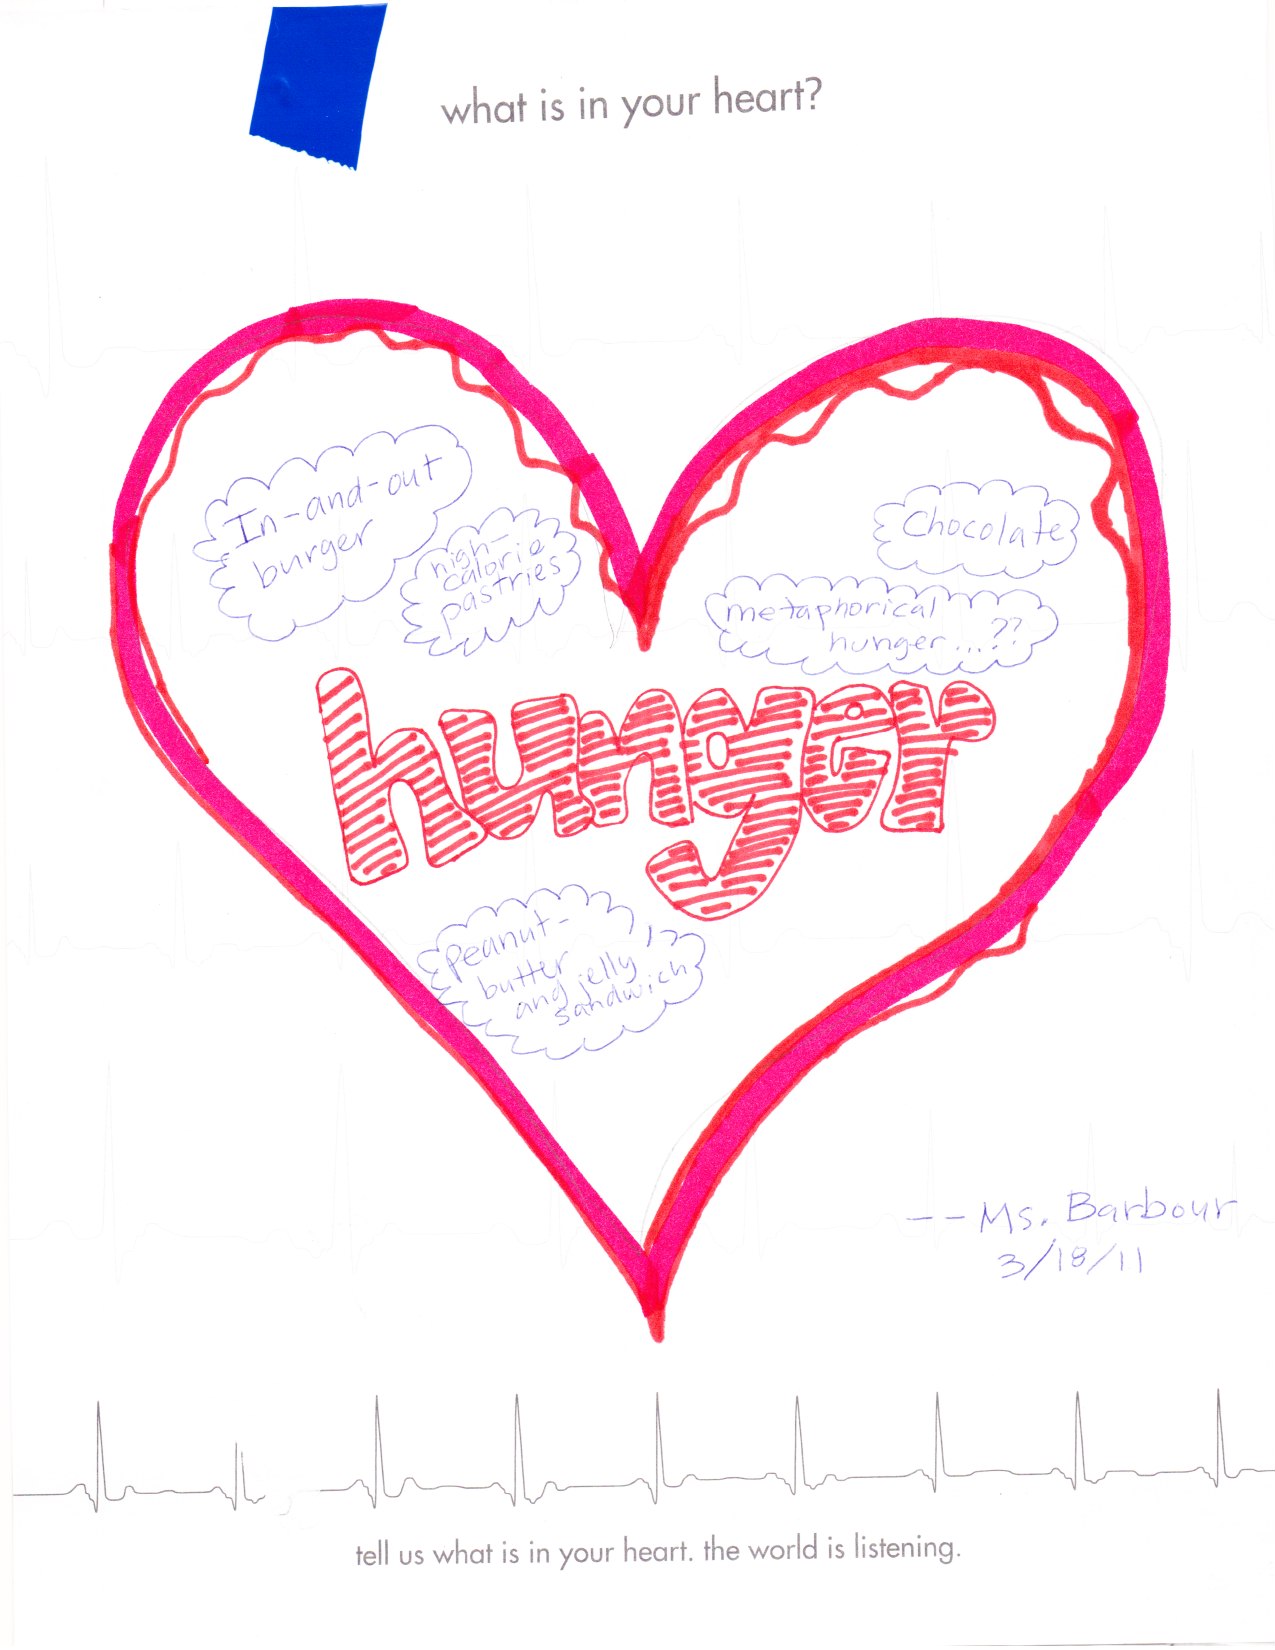 what is in your heart?
In-and-out
burger
high-
calorie
pastries
Chocolate
metaphorical
hunger...??
hunger
Peanut-
butter
and jelly
sandwich
-- Ms. Barbour
3/18/11
tell us what is in your heart. the world is listening.